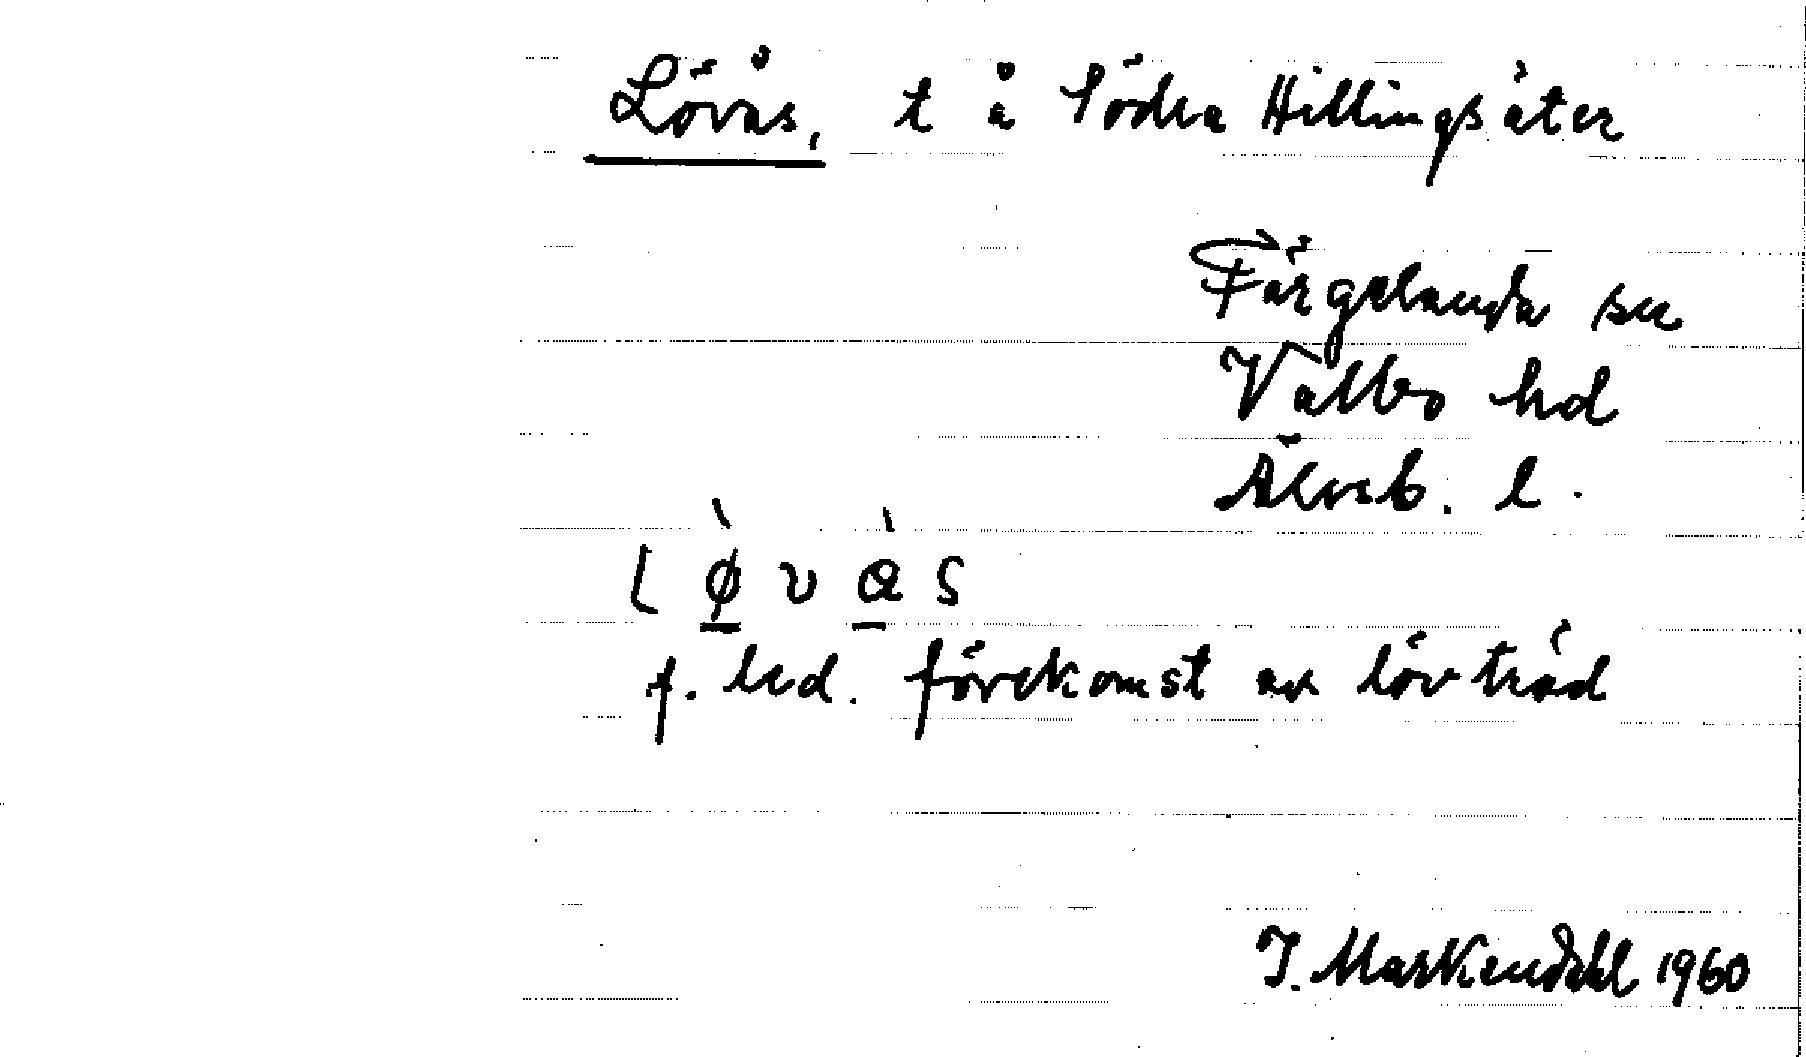 Lövås, t å Södra Hillingsäter
Färgelanda sn
Valbo hd
Älvsb. l.
l ø̀ v ɑ̀ s
f. led. förekomst av lövträd
J. Markendahl 1960